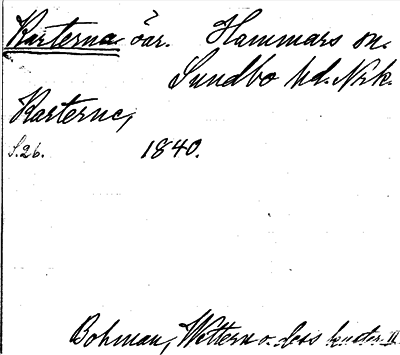 Karterna öar. Hammars sn.
Sundbo hd. Nrk.
Karterne,
S. 26. 1840.
Bohman, Wettern o. dess kuster. II.